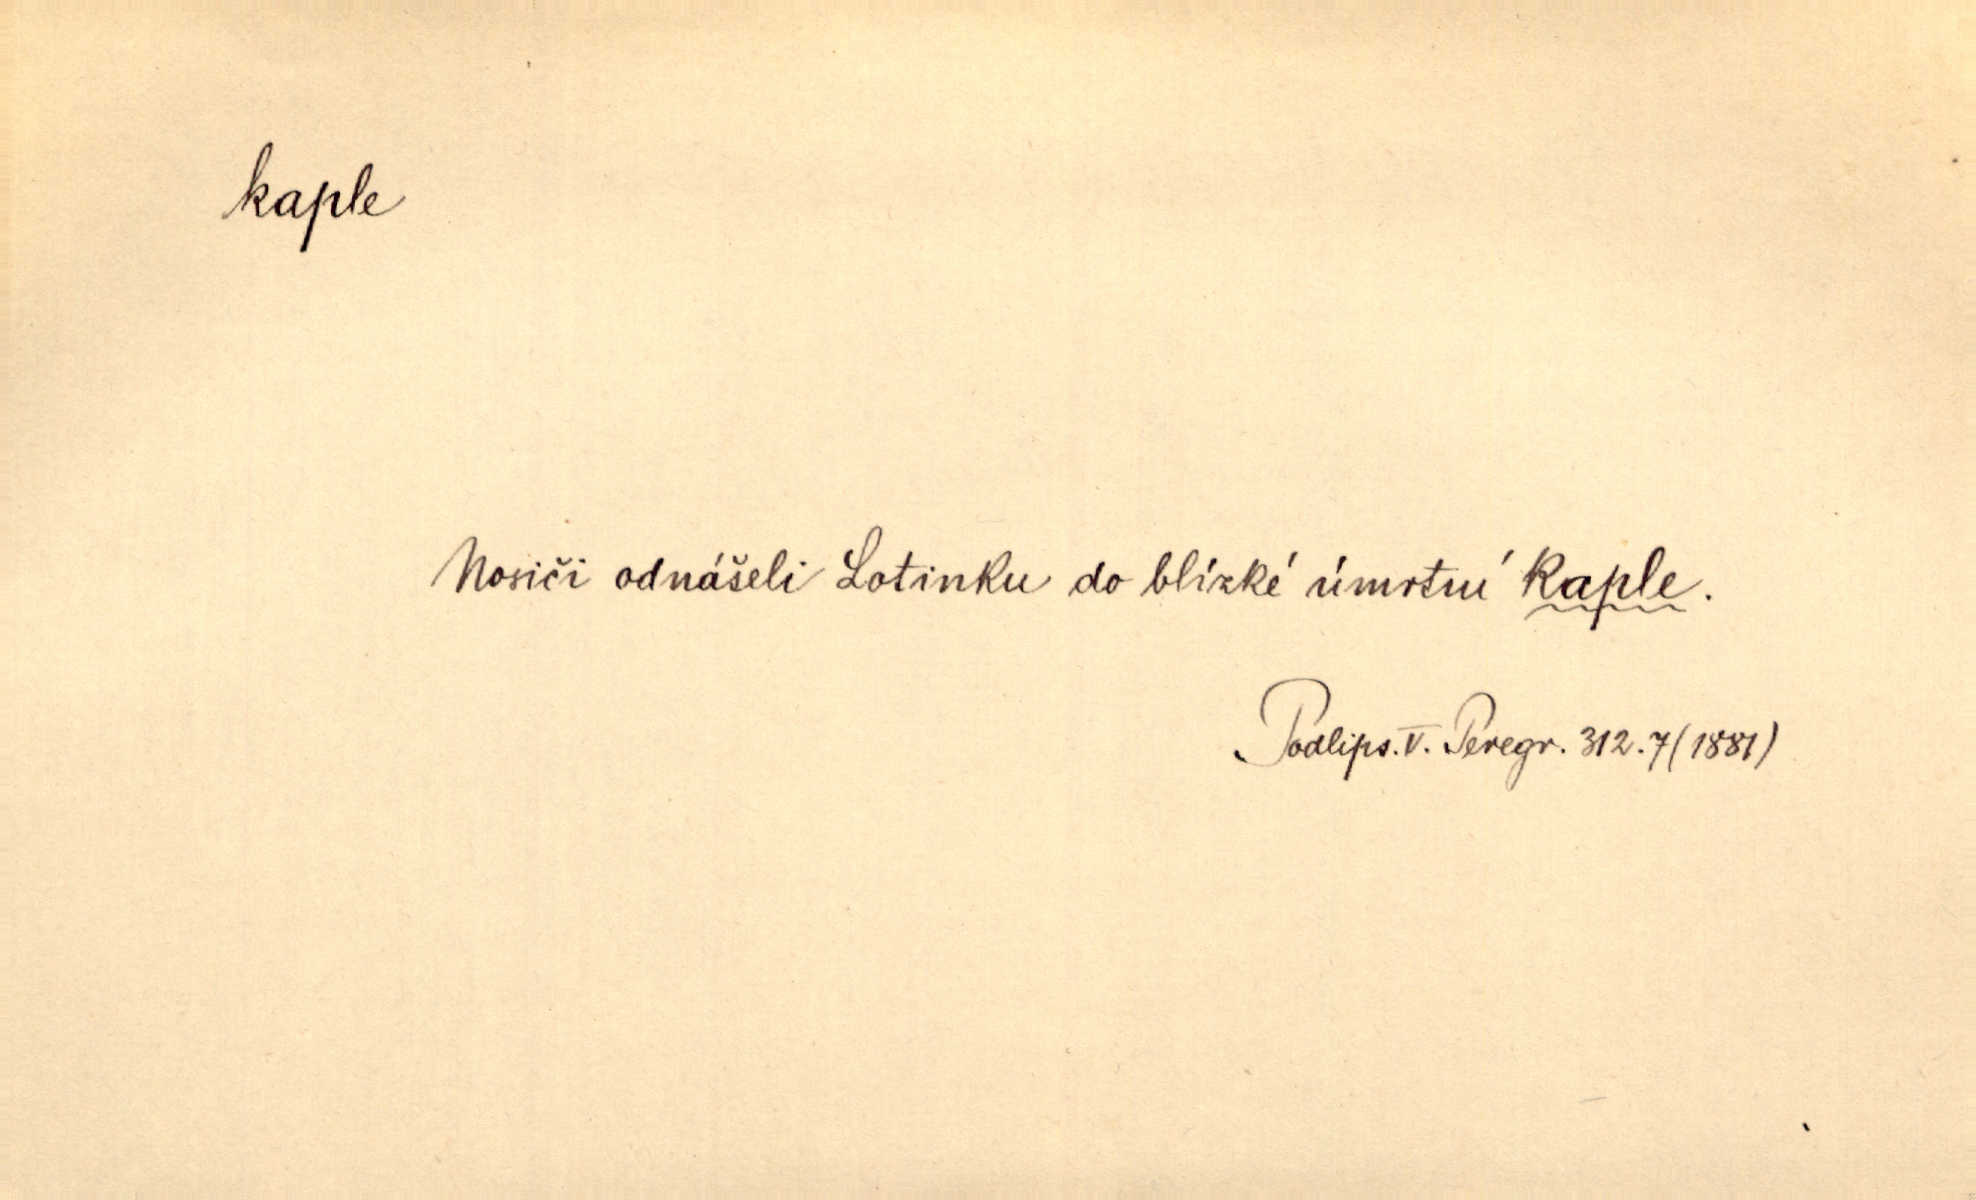 kaple
Nosiči odnášeli Lotinku do blízké úmrtní kaple.
Podlips. V. Peregr. 312.7 (1881)